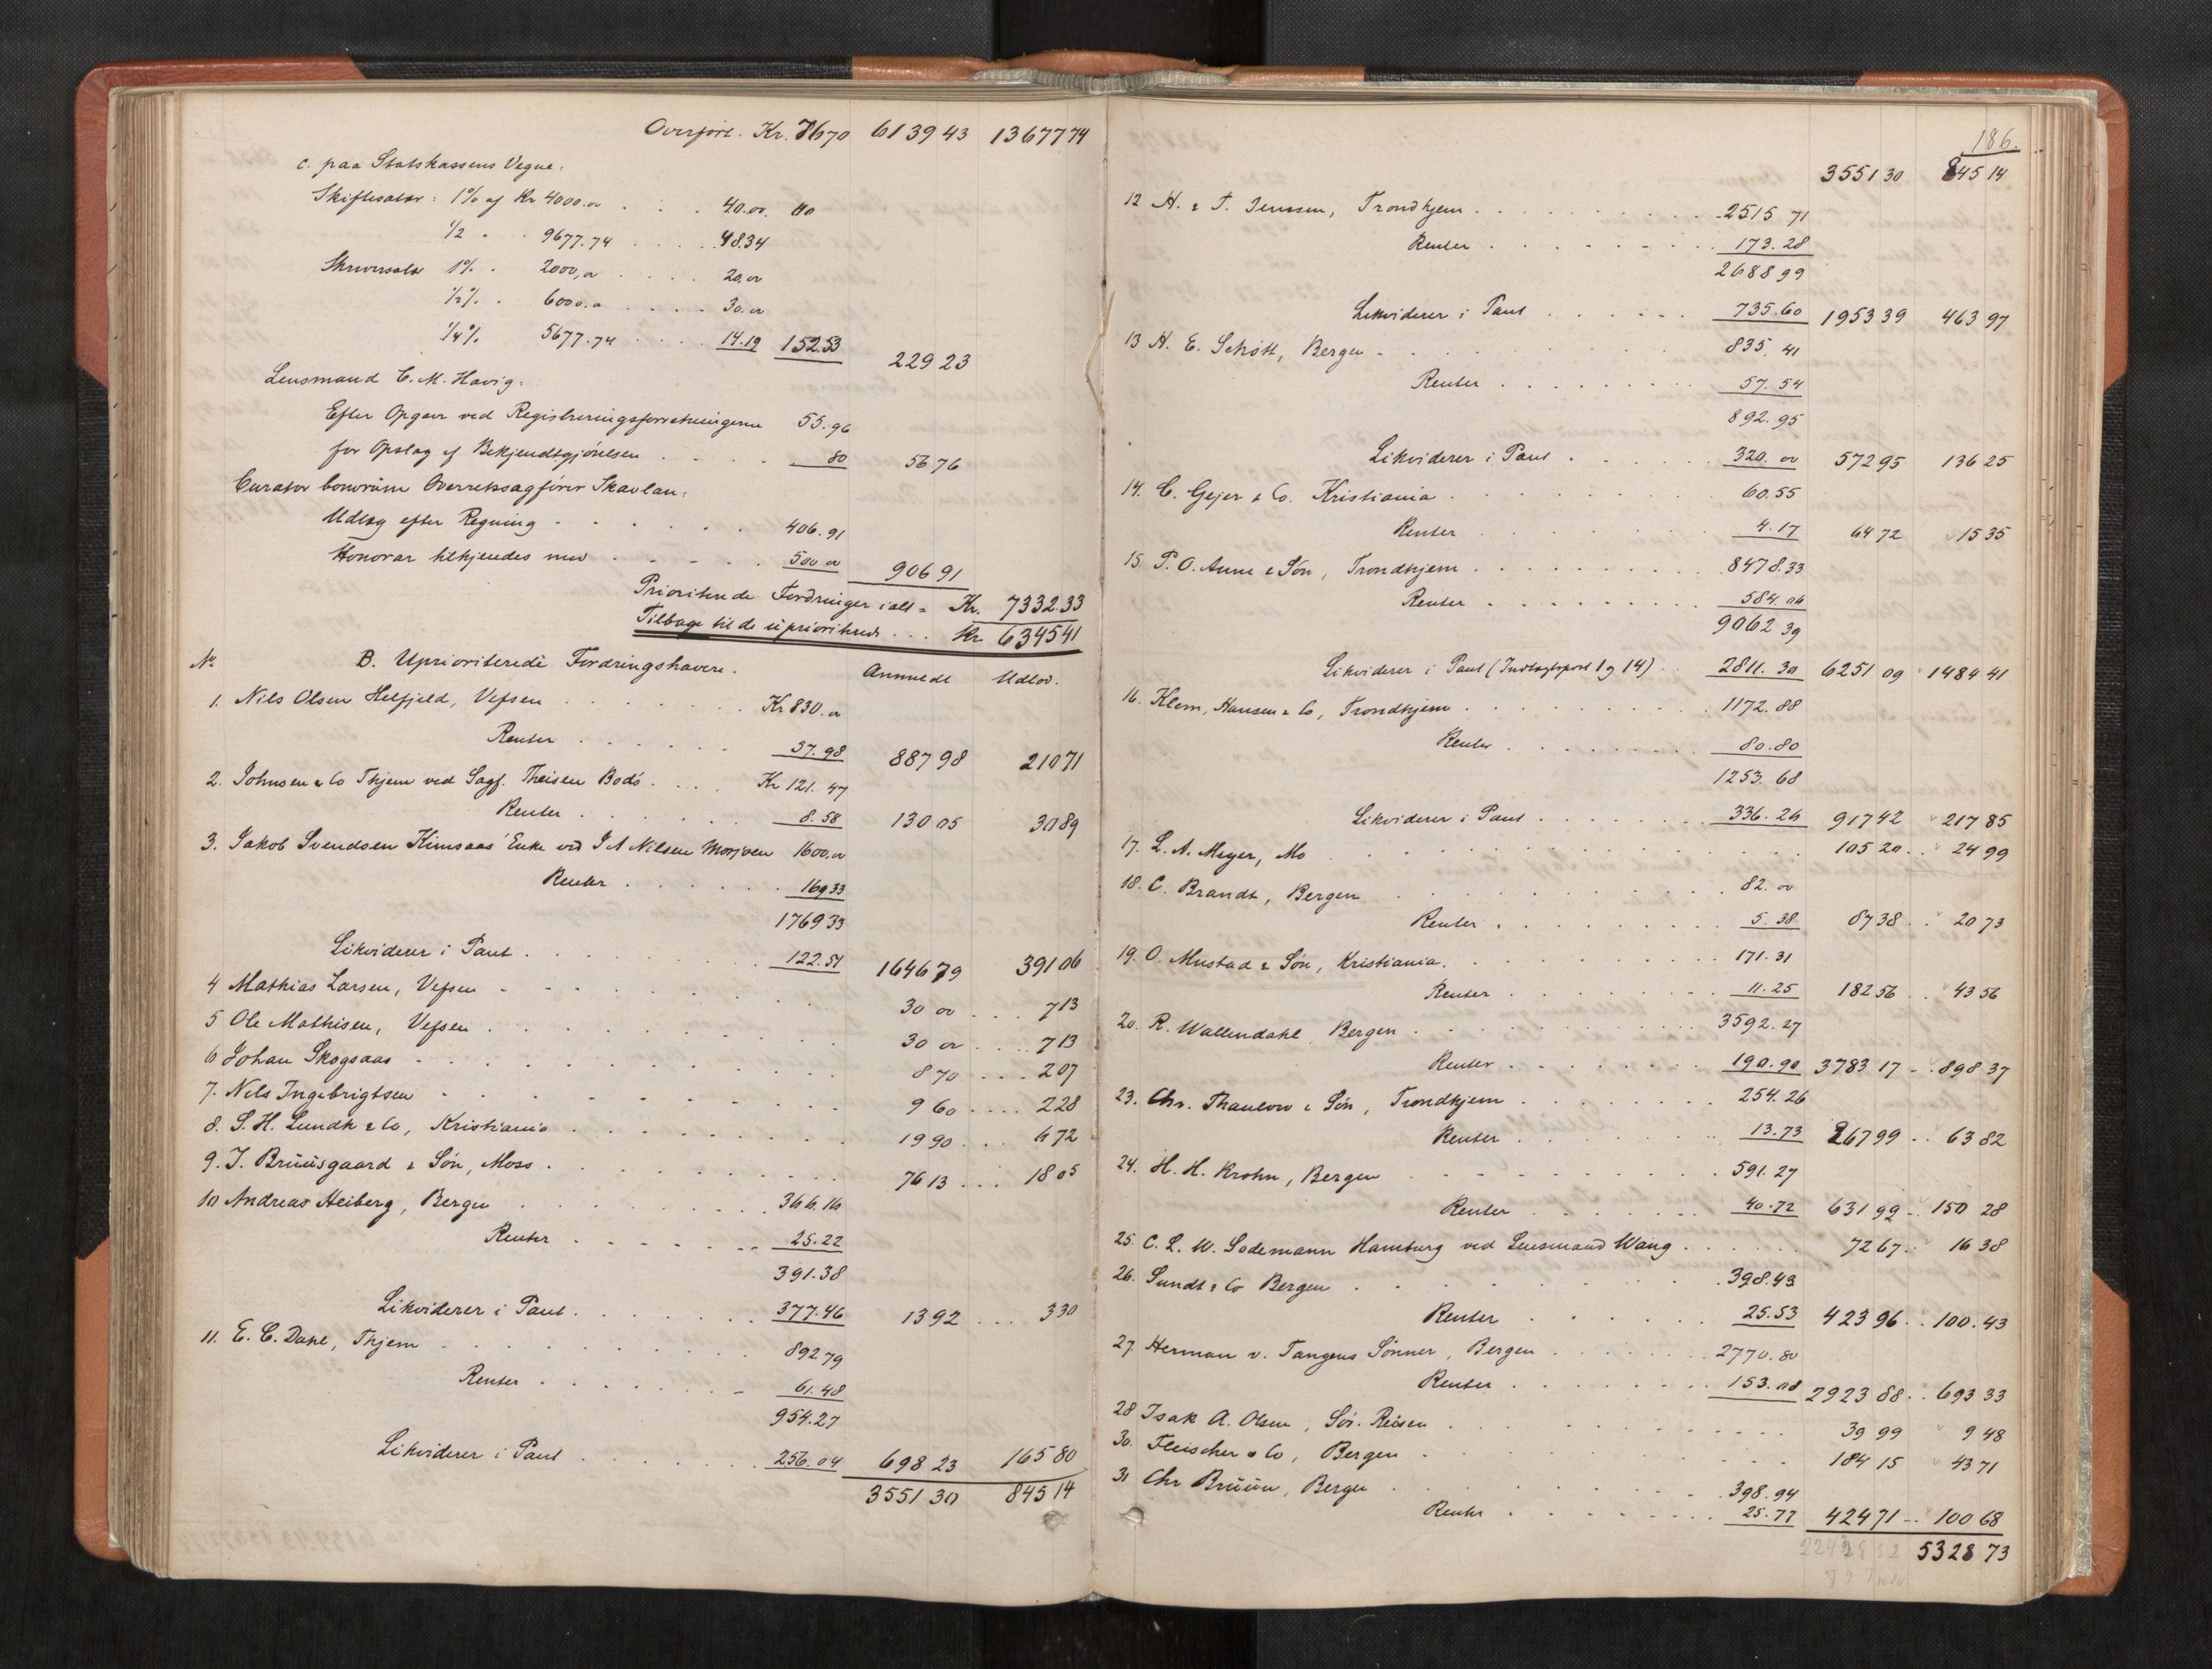 Overført. Kr. 7670 6139 43 13677 74
c. paa Statskassens Vegne:
Skifteafgr: 1% af Kr 4000.00 . . . 40.00
1/2 " . 9677.74 . . . . 48.34
Skriversalær 1% . 2000,00 . . . . 20,00
1/2% . 6000.00 . . . . . 30.00
1/4% 5677.74 . . . . 14.19 152.53 229 23
Lensmand C. M. Havig:
Efter Opgave ved Registreringsforretningerne 55.96
for Opslag af Bekjendtgjørelsen . . . . 80 56 76
Curator bonorum Overretssagfører Skavlan:
Udlæg efter Regning . . . . . . 406.91
Honorar tilkjendes med . . . . . 500 00 906 91
Prioriterede Fordringer ialt = Kr. 7332.33
Tilbage til de uprioriterede . . . Kr 6345 41
No B. Uprioriterede Fordringshavere. Anmeldt Udlod.
1. Nils Olsen Helfjeld, Vefsen . . . . . . Kr 830.00
Renter . . . . . . 57.98 887 98 210 71
2. Johnsen & Co Thjem ved Sagf. Theisen Bodø . . . . Kr 121. 47
Renter . . . . . . 8.58 130 05 30 89
3. Jakob Svendsen Kimsaas' Enke ved J A Nilsen Mosjøen 1600,00
Renter . . . . . . 169 33
1769 33
Likviderer i Pant . . . . . . . . 122.54 1646 79 391 06
4 Mathias Larsen, Vefsen . . . . . . . . 30 00 . . . 7 13
5 Ole Mathisen, Vefsen . . . . . . . . 30 00 . . . . 7 13
6 Johan Skogsaas . . . . . . . . . . 8 70 . . . 2 07
7. Nils Ingebrigtsen . . . . . . . . . . 9 60 . . . . 2 28
8. S. H. Lundh & Co, Kristiania . . . . . . . . 19 90 . . . 4 72
9. J. Bruusgaard & Søn, Moss . . . . . . . . 76 13 . . . 18 05
10 Andreas Heiberg, Bergen . . . . . . . . 366.16
Renter . . . . . . . 25.22
391.38
Likviderer i Pant . . . . . . 377.46 13 92 . . . 3 30
11. E. C. Dahl, Thjem . . . . . . . . . 892.79
Renter . . . . . . . 61.48
954.27
Likviderer i Pant . . . . . . 256.04 698 23 165 80
3551 30 845 14
186.
3551 30 845 14
12 H. & T. Jenssen, Trondhjem . . . . . . . . . 2515 71
Renter . . . . . . . . 173.28
2688 99
Likviderer i Pant . . . . . . 735.60 1953 39 463 97
13 H. E. Schøtt, Bergen . . . . . . . . . 835,41
Renter . . . . . . . . 57.54
892.95
Likviderer i Pant . . . . . . 320.00 572 95 136 25
14. C. Gejer & Co. Kristiania . . . . . . . . . 60.55
Renter . . . . . . . 4.17 64 72 15 35
15. P. O. Aune & Søn, Trondhjem . . . . . . . . . 8478.33
Renter . . . . . . . . . 584.06
9062 39
Likviderer i Pant (Indtægtspost 1 og 14) . . 2811.30 6251 09 1484 41
16. Klem, Hansen & Co, Trondhjem . . . . . . . . . 1172.88
Renter . . . . . . . . 80.80
1253.68
Likviderer i Pant . . . . . . . . 336.26 917 42 217 85
17. L. A. Meyer, Mo . . . . . . . . . . 105 20 . . 24 99
18. C. Brandt, Bergen . . . . . . . . . 82.00
Renter . . . . . . . . . 5.38 87 38 . . 20 73
19. O. Mustad & Søn, Kristiania. . . . . . . . . 171.31
Renter . . . . . . . . 11.25 182 56 . . 43 56
20. R. Wallendahl, Bergen . . . . . . . . . 3592.27
Renter . . . . . . . . 190.90 3783 17 . . 898 37
23. Chr. Thaulow & Søn, Trondhjem . . . . . . . 254.26
Renter . . . . . . . . 13.73 267 99 . . 63 82
24. H. H. Krohn, Bergen . . . . . . . . . 591.27
Renter . . . . . . . 40.72 631 99 . . 150 28
25. C. L. W. Sodemann Hamburg ved Lensmand Wang . . . . . . 72 67 . . 16 38
26. Sundt & Co Bergen . . . . . . . . . . 398.43
Renter . . . . . . . 25.53 423 96 . . 100.43
27 Herman v. Tangens Sønner, Bergen . . . . . . . 2770.80
Renter . . . . . . . . 153.08 2923 88 . . 693 33
28 Isak A. Olsen, Sør. Reisen . . . . . . . . 39 99 9 48
30. Fleischer & Co, Bergen . . . . . . . . 184 15 43 71
31 Chr Bruun, Bergen . . . . . . . . . 398.94
Renter . . . . . . . . . 25.77 424 71 . . 100 68
5328 73